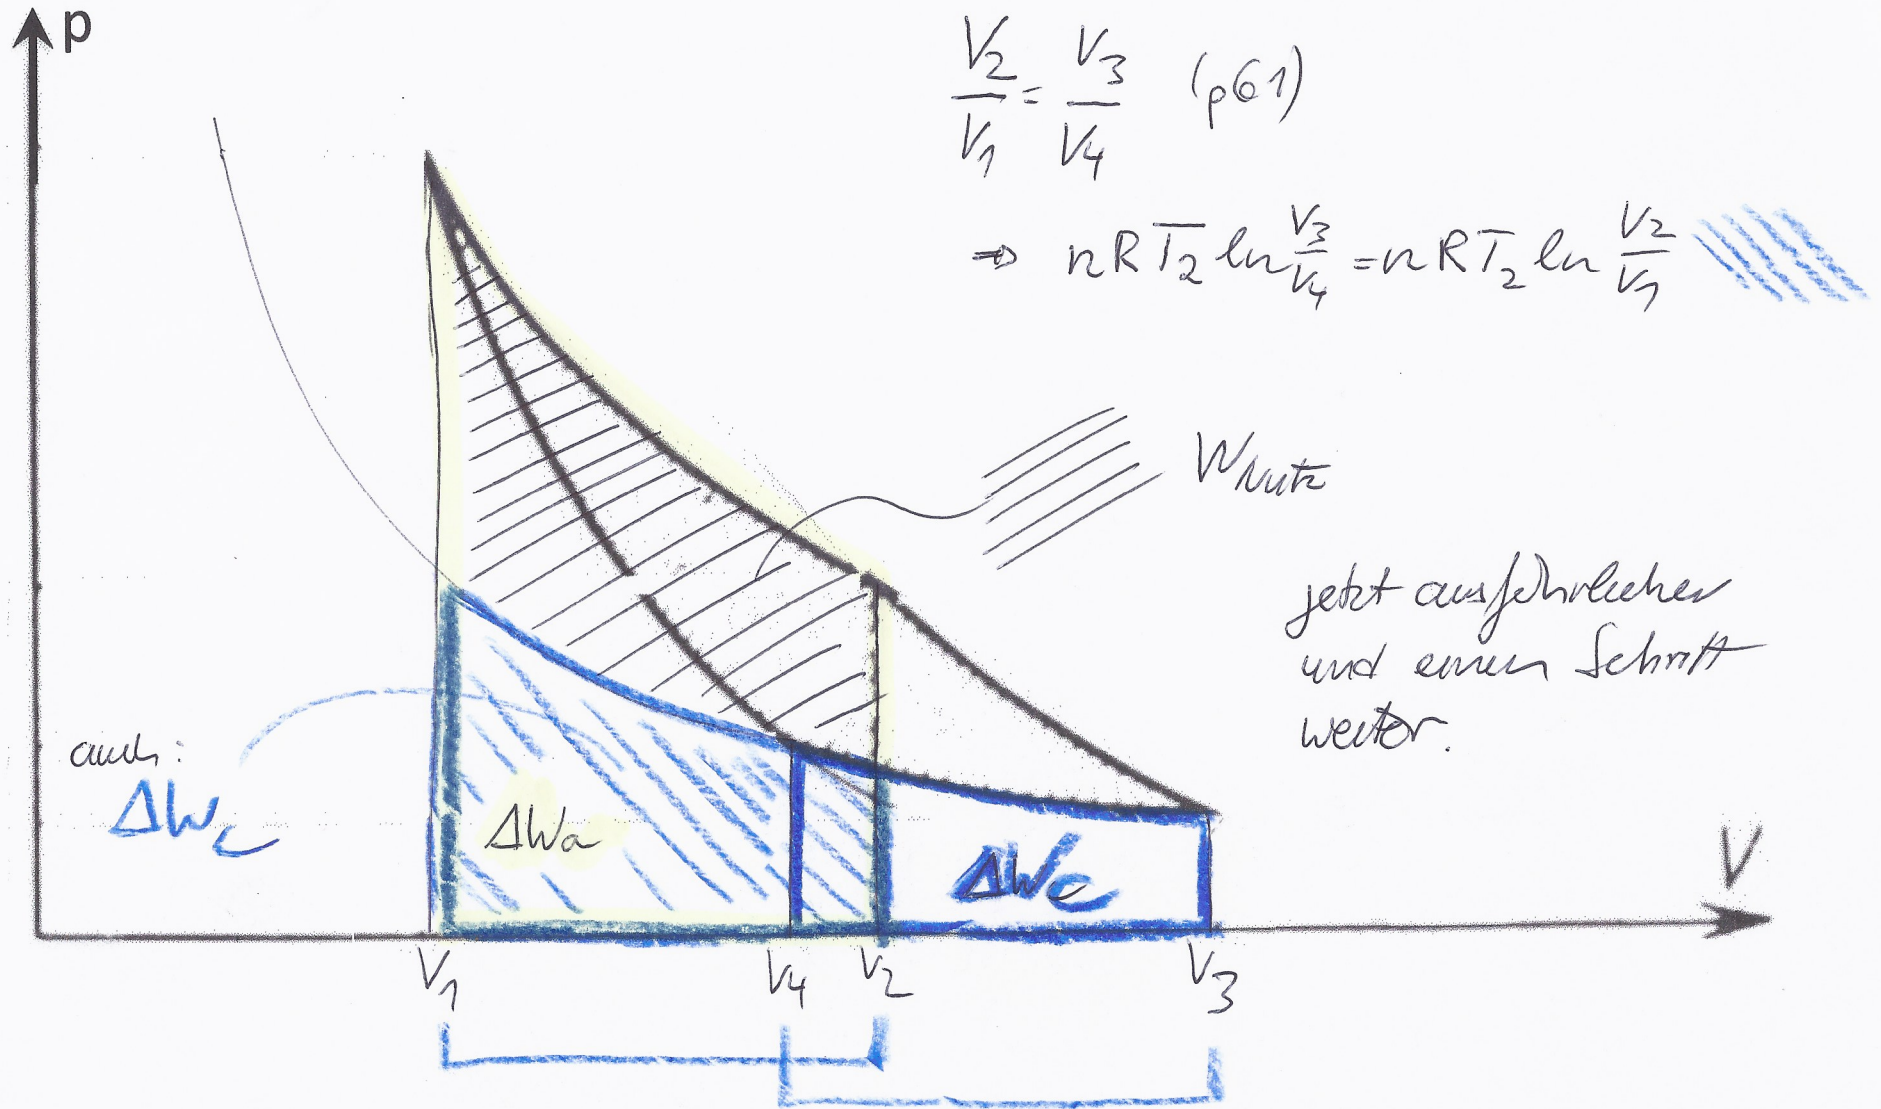 p
V₂/V₁ = V₃/V₄ (p61)
⇒ nRT₂ ln V₃/V₄ = nRT₂ ln V₂/V₁
W_Nutz
jetzt ausführlicher
und einen Schritt
weiter.
auch:
ΔW_c
ΔWa
ΔWc
V
V₁ V₄ V₂ V₃